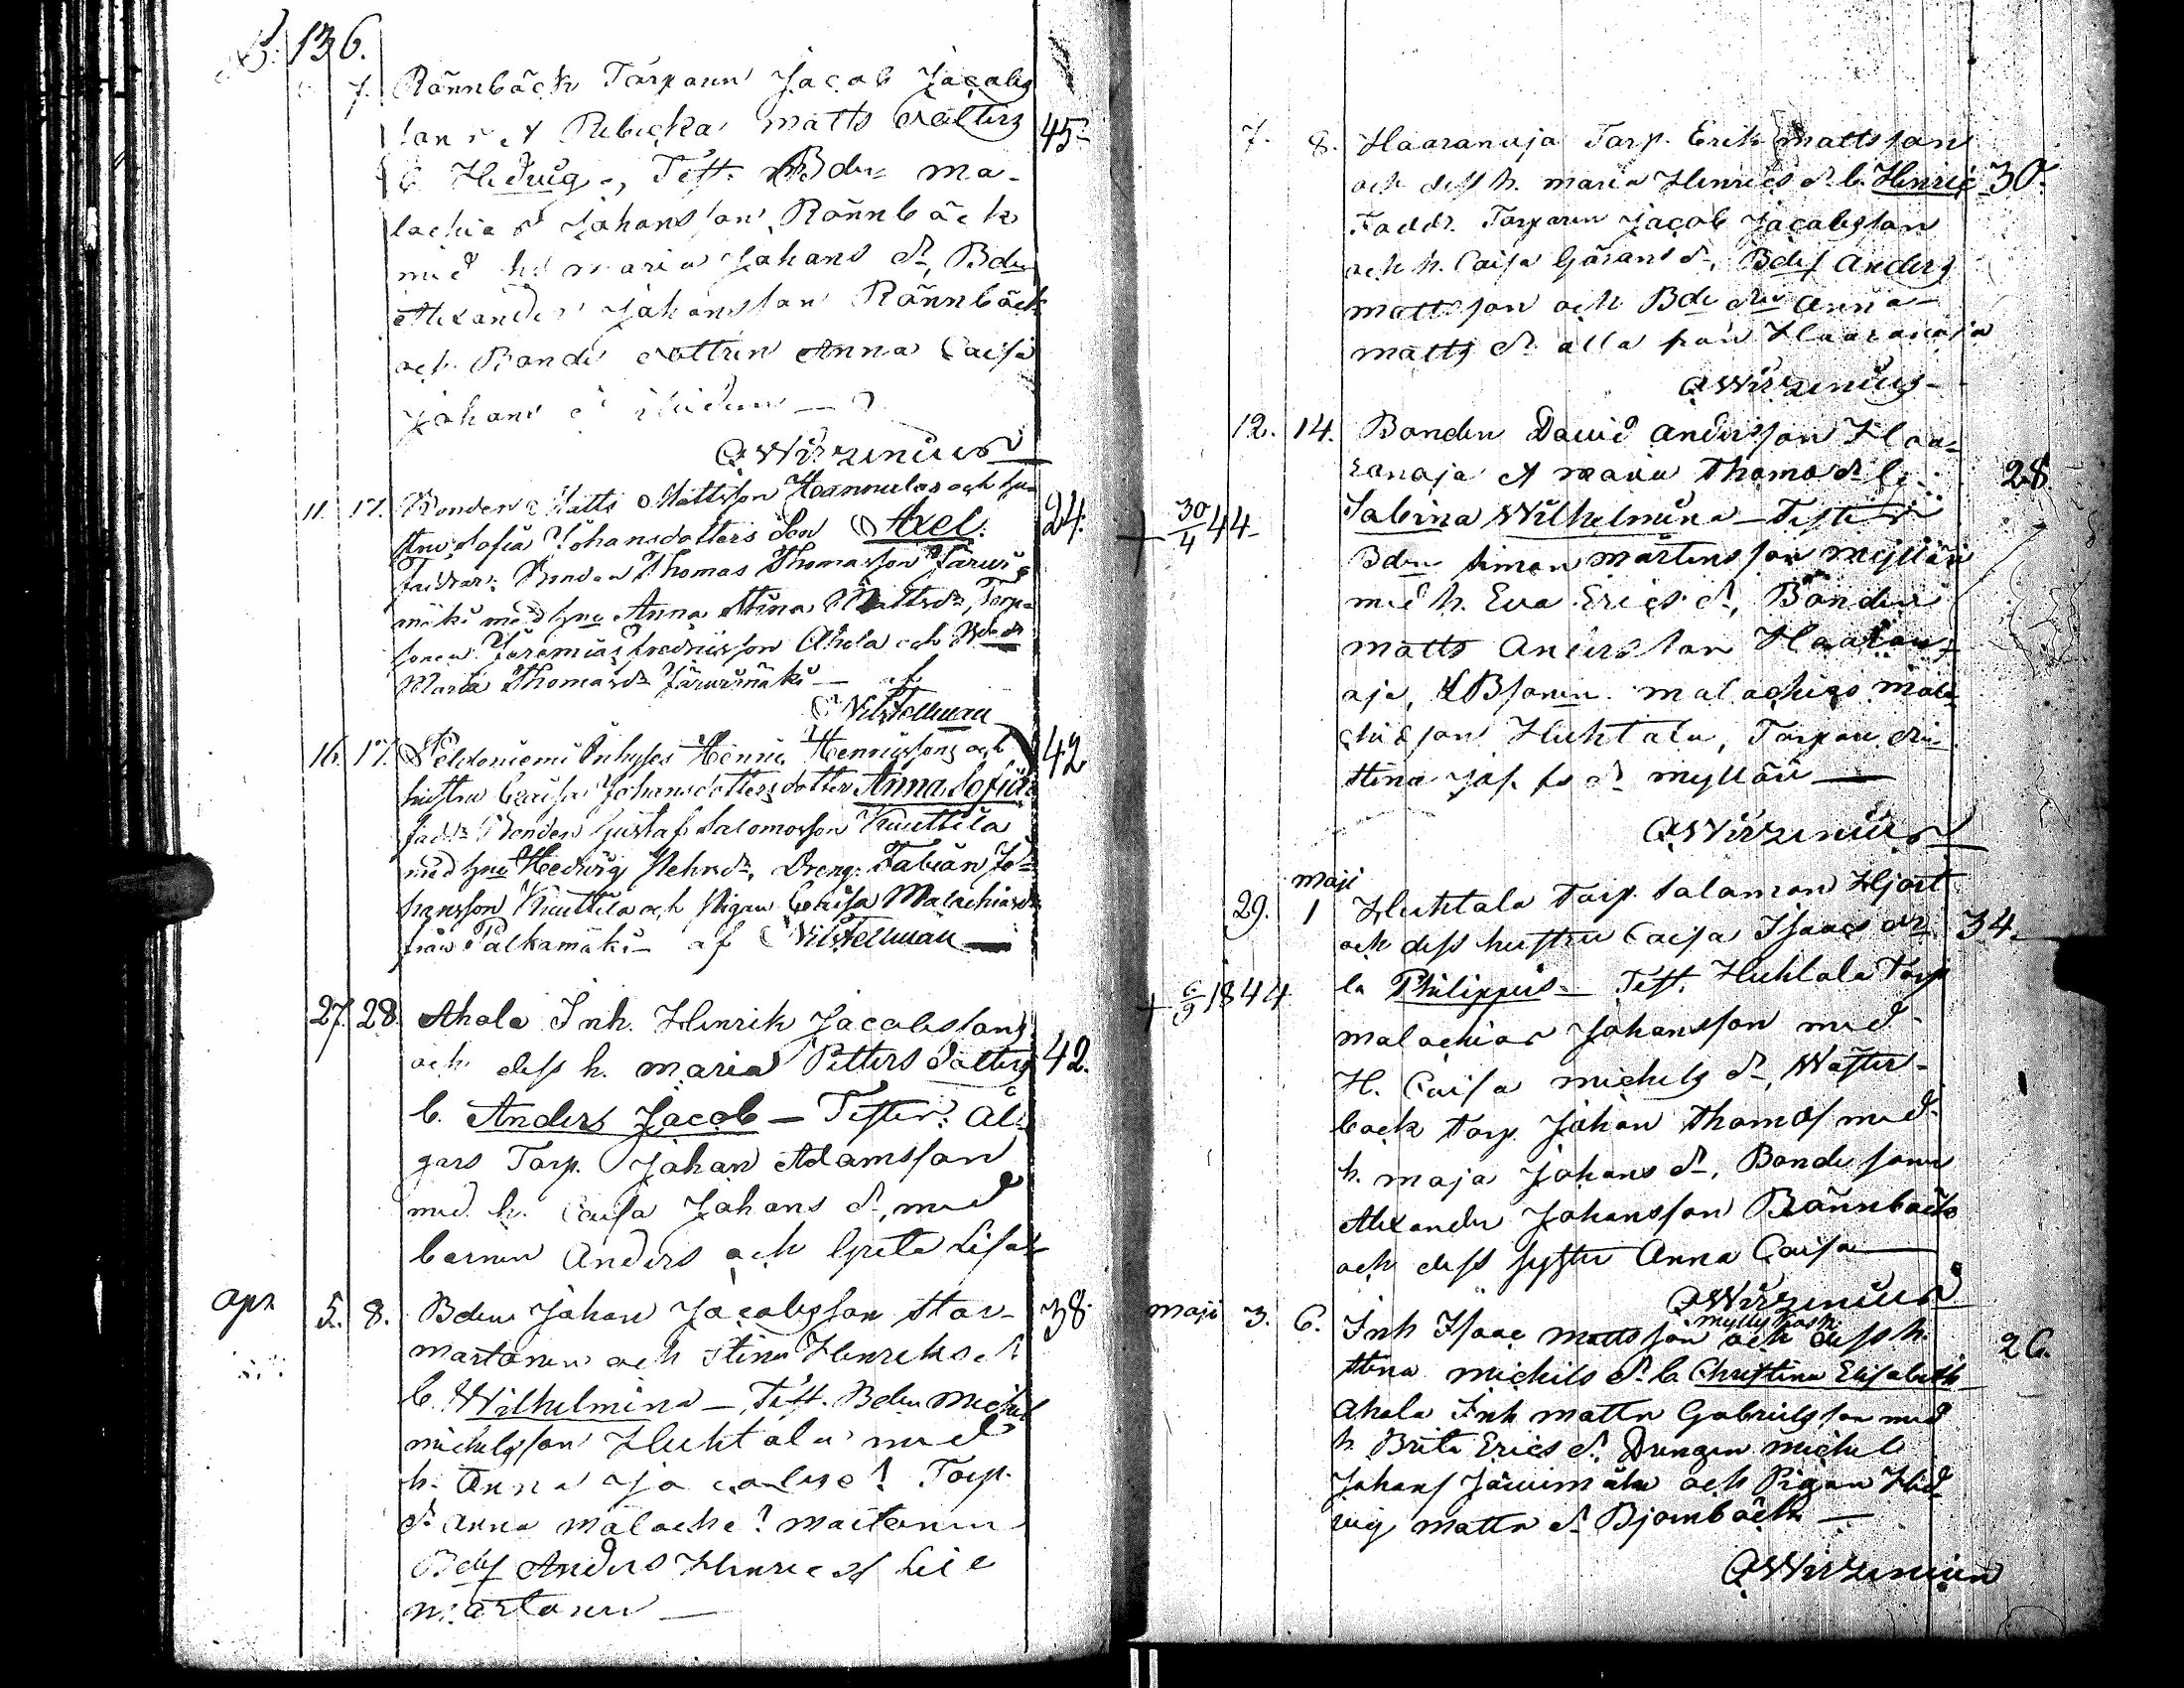 136.
7. Rönnbäck Torparen Jacob Jacobs
son et Rebecka Matts dotters 45
b. Hedvig, Test. Bden Ma-
lachias Johansson Rönnbäck
med h. Maria Johans dr, Bden
Alexander Johansson Rönnbäck
och Bonde dottren Anna Caisa
Johans dr
QWirzenius
11. 17. Bonden Matts Mattsson Hannula och hu- 24.
stru Sofia Johansdotters son Axel.
Faddrar: Bonden Thomas Thomasson Järvis
mäki med hu Anna Stina Mattsdr, Torp-
sonen Jeremias Fredricsson Ahola och Bdedr
Maria Thomasdr Järvismäki — af
Wilstellman
16. 17. Peldoniemi Inhyses Henric Henricssons och 42
hustru Caisa Johansdotters dotter Anna Sofia
Fadd. Bonden Gustaf Salomosson Knuttila
med hu Hedvig Dreng. Fabian Jo-
hansson Knuttila och Pigan Caisa Malachiasdr
från Palkamäki — af Wilstellman
27. 28. Ahola Inh. Henrik Jacobssons
och dess h. Maria Petters dotters 42.
b. Anders Jacob — Tester: Al-
gars Torp. Johan Adamsson
med h. Caisa Johans dr, med
barnen Anders och Greta Lisa
apr 5. 8. Bden Johan Jacobsson Stor- 38
martonen och Stina Henriks dr
b. Wilhelmina — Test. Bden Michel
Michelsson Huhtala med
h. Anna Jacobs d. Torp.
dr Anna Malachi d. Martonen
Bdes Anders Henricss Lill
martonen —
7. 8. Haaranoja Torp. Erik Mattsson
och dess h. Maria Henrics dr b. Henric 30.
Faddr. Torparen Jacob Jacobsson
och h. Caisa Görans dr, Bdes Anders
Mattsson och Bde dr Anna
Matts dr alla från Haaranoja
QWirzenius
12. 14. Bonden David Andersson Haa-
ranoja et Maria Thomas dr b. 28
+ 30/4 44 Sabina Wilhelmina — Tester
Bden Simon Mårtensson Mylläri
med h. Eva Erics dr, Bonden
Matts Andersson Haaran-
oja, Bsonen Malachias Mala-
chiasson Huhtala, Torpare dr
Stina Josefs dr Mylläri —
QWirzenius
Maji
29. 1 Huhtala Torp. Salamon Hjort
och dess hustru Caisa Isaacs dr 34.
+ 6/9 1844 b. Philippus — Test. Huhtala Torp
Malachias Johansson med
H. Caisa Michels dr, Wester-
back Torp. Johan Thomass med
h. Maja Johans dr, Bonde sonen
Alexander Johansson Rönnbäck
och dess syster Anna Caisa
QWirzenius
Maji 3. 6. Inh Isaac Mattsson Myllykoski och dess h. 26.
Stina Michils dr b. Christina Elisabeth
Ahola Inh Matts Gabrielsson med
h. Brita Erics dr. Drengen Michel
Johans Järvimäki och Pigan Hed-
vig Matts dr Björnbäck —
QWirzenius